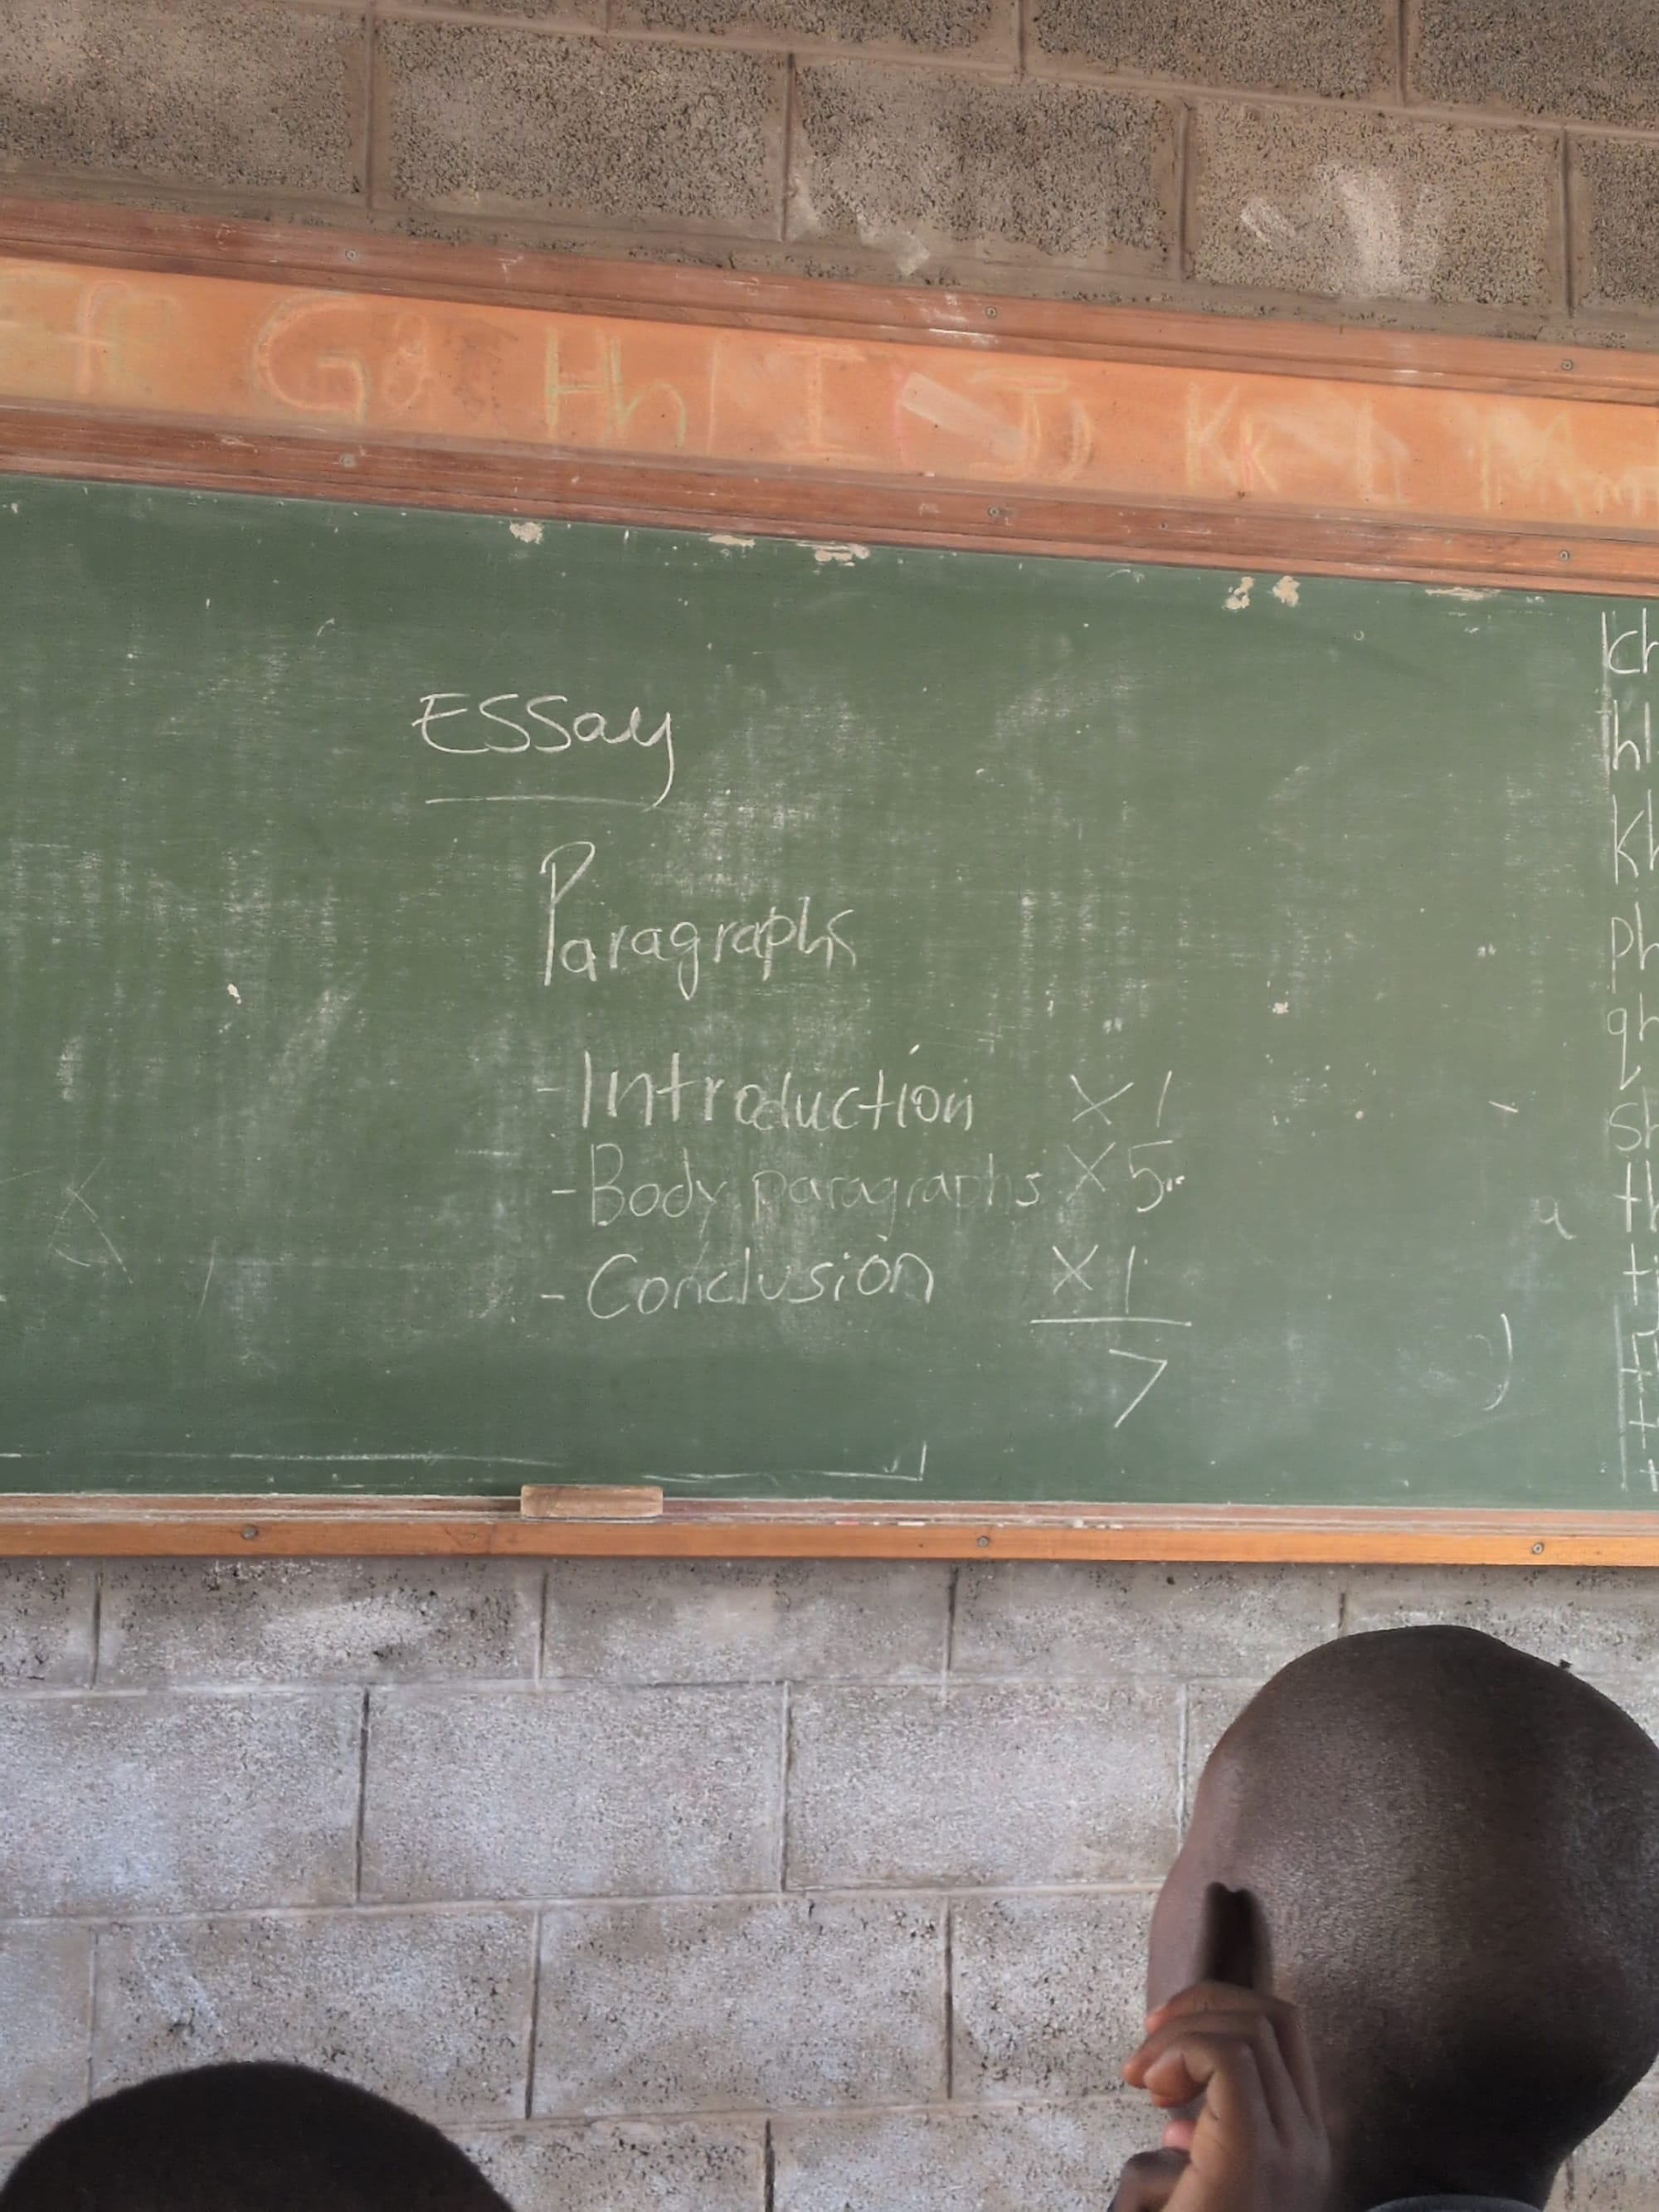 Gg Hh I J Kk L Mm
Essay
Paragraphs
- Introduction X 1
- Body paragraphs X 5
- Conclusion X 1
7
kh
hl
Kh
ph
qh
sh
th